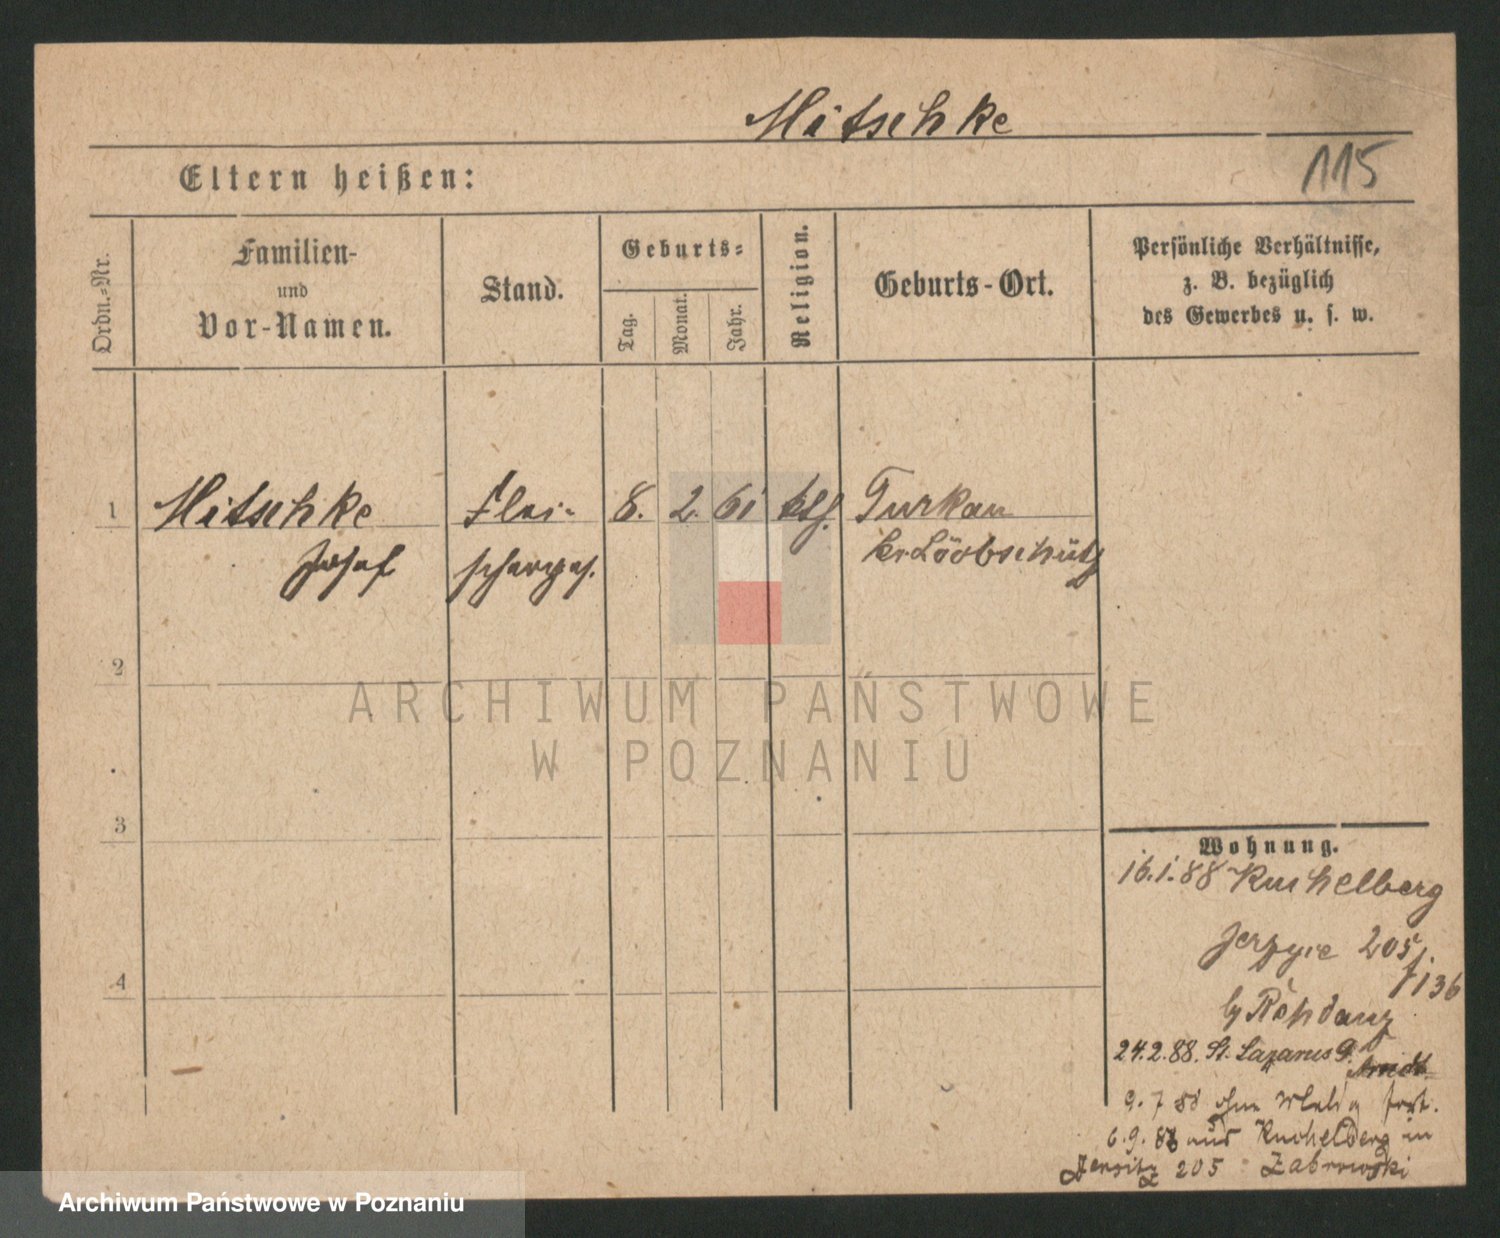 Mitschke
115
Eltern heißen:
Ordn.-Nr.
Familien-
und
Vor-Namen.
Stand.
Geburts-
Tag.
Monat.
Jahr.
Religion.
Geburts-Ort.
Persönliche Verhältnisse,
z. B. bezüglich
des Gewerbes u. s. w.
1
Mitschke
Josef
Flei-
scherges.
8. 2. 61
ktl.
Turkau
kr. Löobschütz
2
3
4
Wohnung.
16.1.88 Kuchelberg
Jerzyce 205
f 136
by
24.2.88. St. Lazarus 9.
Arndt
9. 7 88 fort.
6.9.88 aus Kuchelberg in
Jersitz 205 Zabrowski
ARCHIWUM PAŃSTWOWE
W POZNANIU
Archiwum Państwowe w Poznaniu